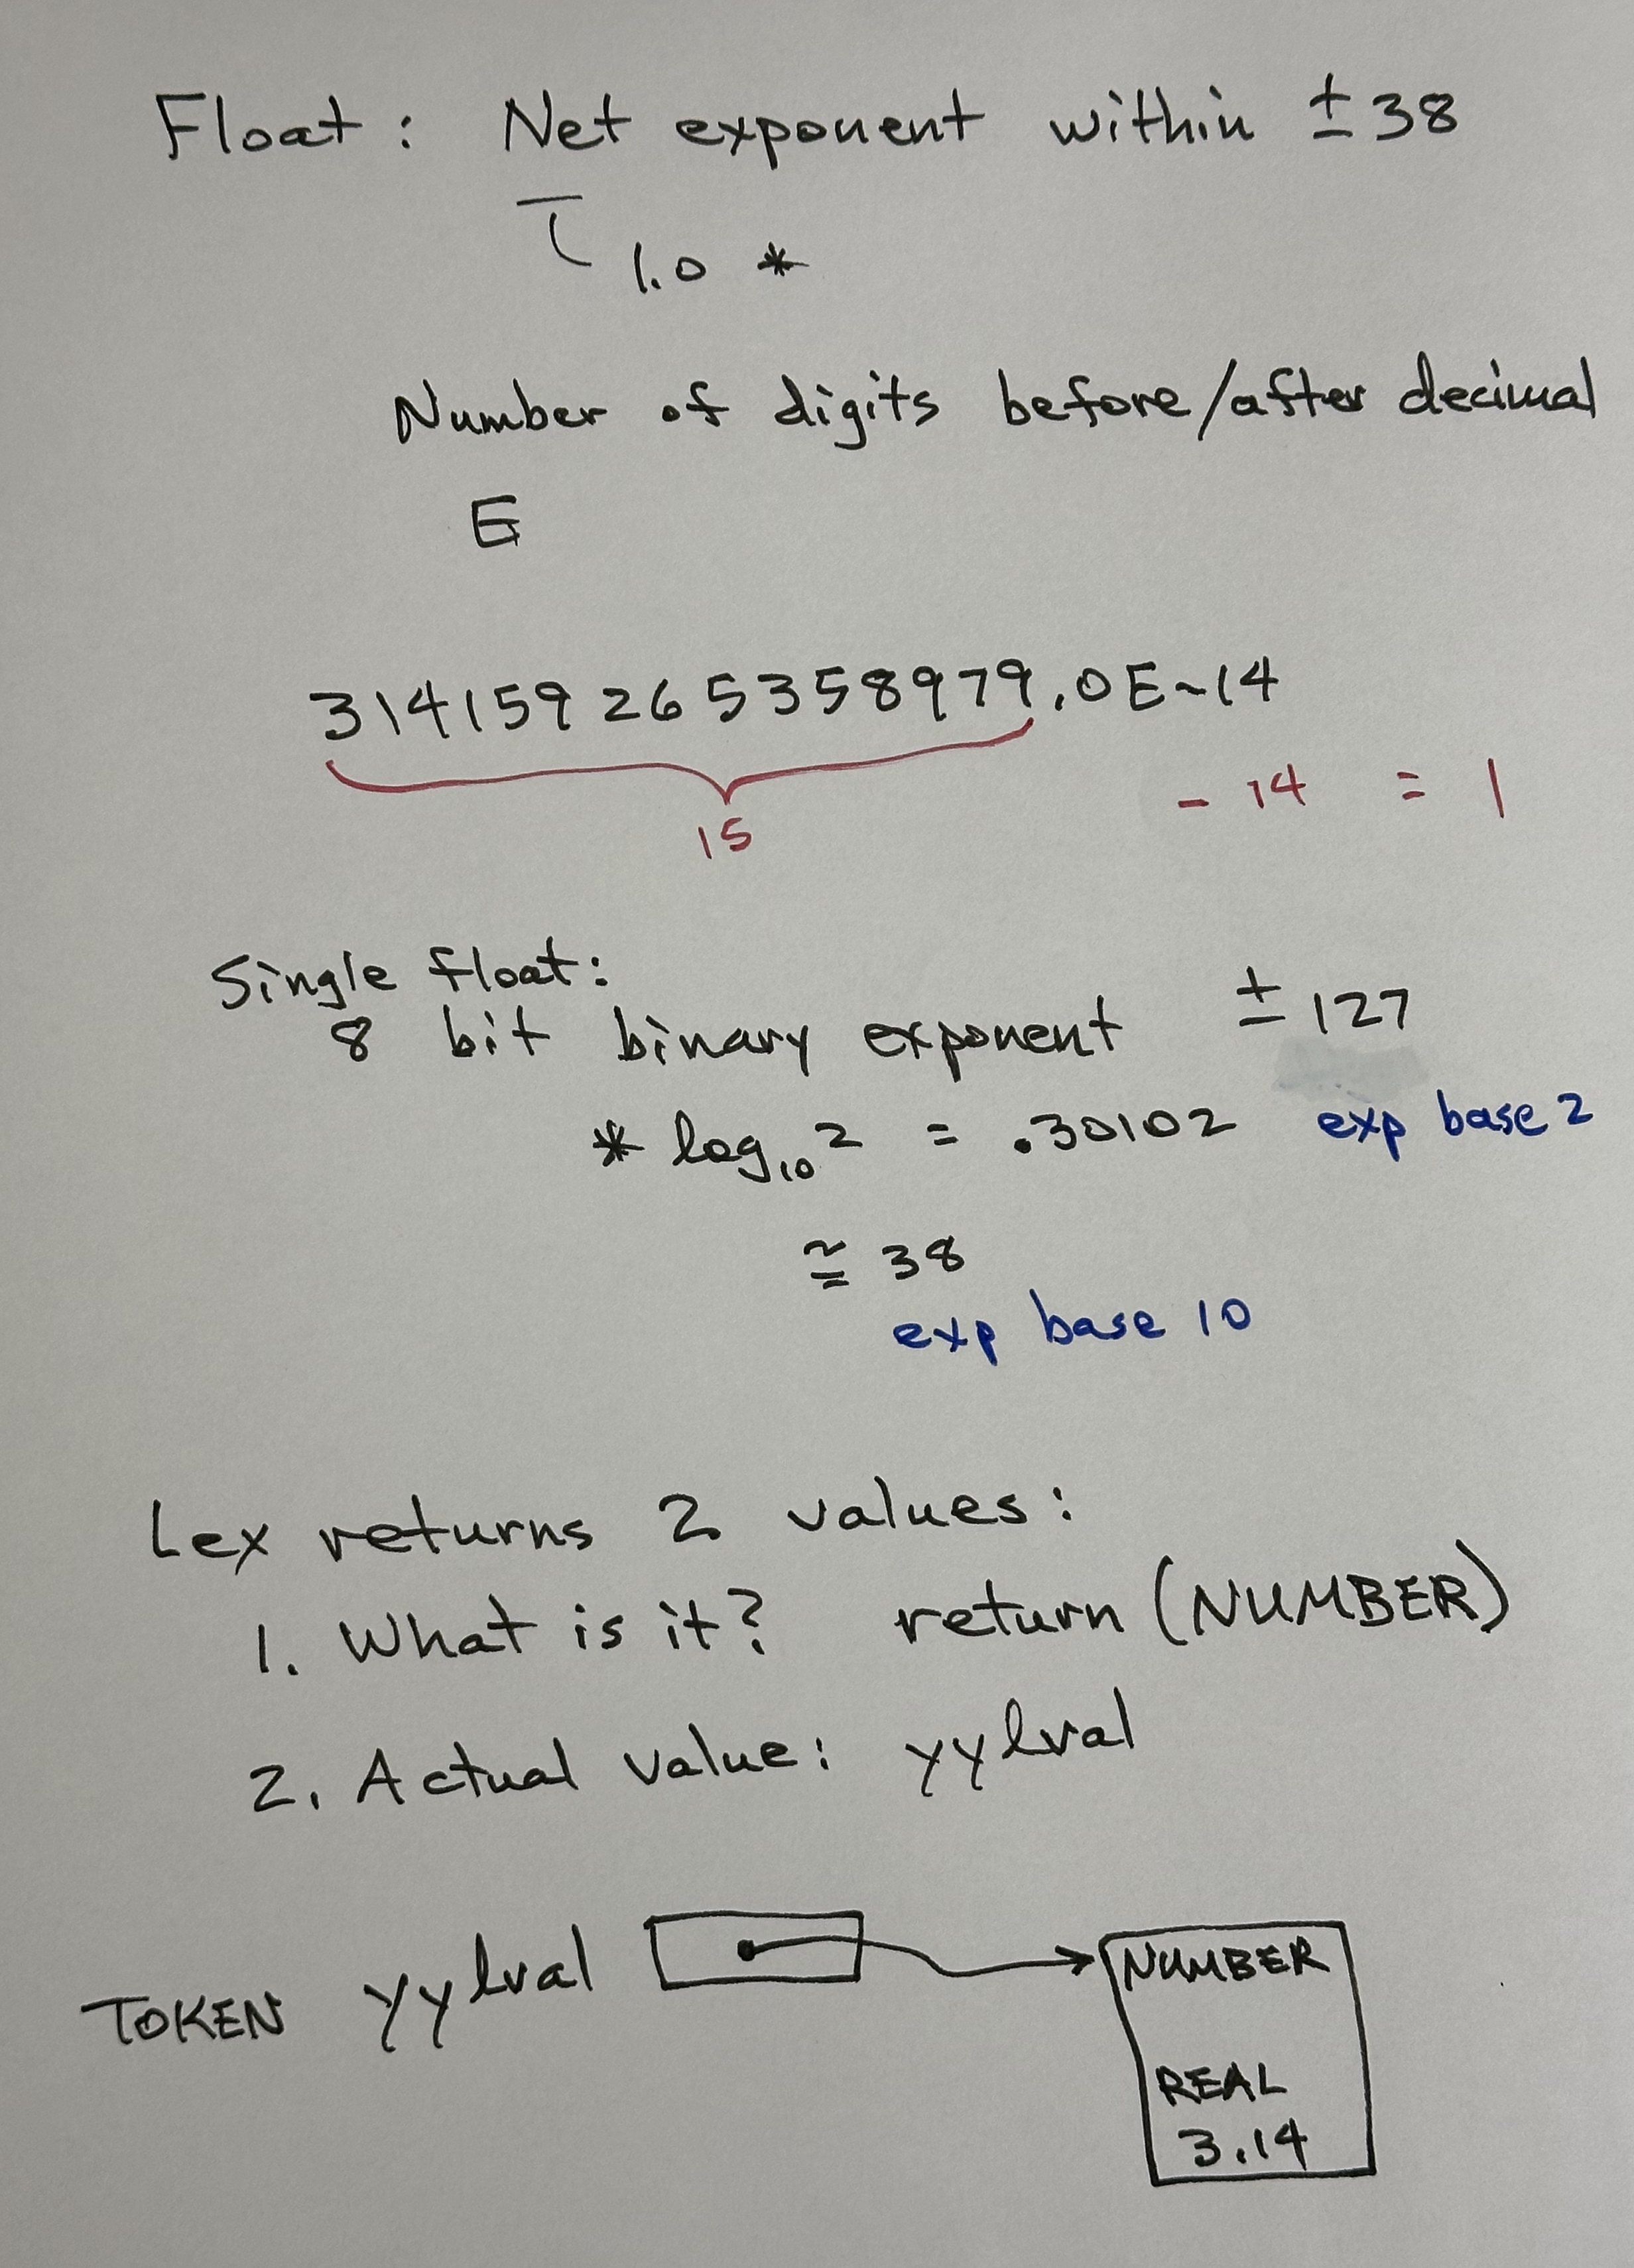 Float: Net exponent within ±38
1.0 *
Number of digits before/after decimal
E
314159265358979.0E-14
15 - 14 = 1
Single float:
8 bit binary exponent ±127
* log₁₀2 = .30102 exp base 2
≅ 38
exp base 10
Lex returns 2 values:
1. What is it? return (NUMBER)
2. Actual value: yylval
TOKEN yylval
NUMBER
REAL
3.14